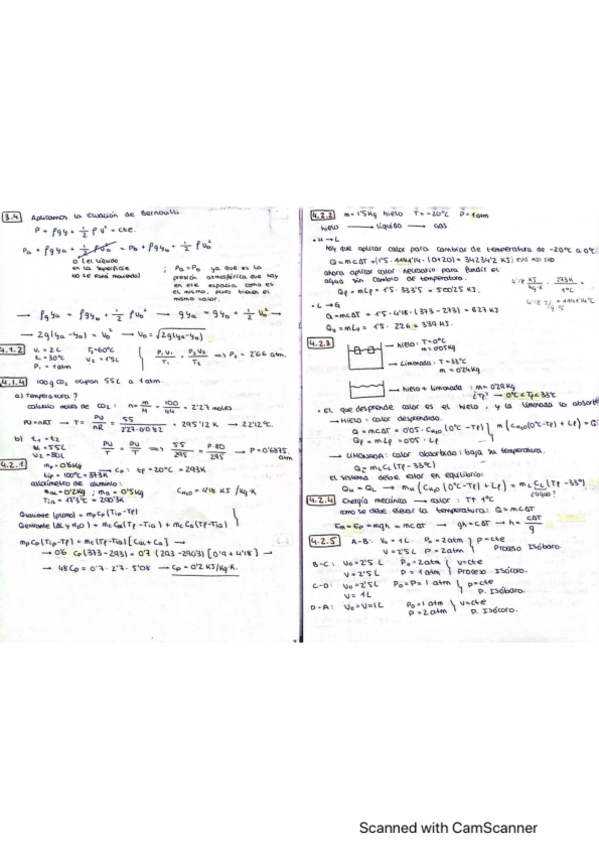 3.4 Aplicamos la Ecuación de Bernouilli.
P + ρgy + 1/2 ρ v² = cte.
Pa + ρgya + 1/2 ρ va² = Pb + ρgyb + 1/2 ρ vb²
0 (el líquido en la superficie no se está moviendo)
; Pa = Pb ya que es la
presión atmosférica que hay
en ese espacio como es
el mismo, pues tienen el
mismo valor.
→ 2g(ya - yb) = vb² → vb = √2g(ya-yb)
4.1.2 V1 = 2L T1 = 60ºC
T2 = 30ºC
P1 = 1 atm
4.1.4 100g CO2 ocupan 55L a 1 atm.
a) Temperatura ?
calculo moles de CO2 : n = m/M = 100/44 = 2'27 moles
PV = nRT → T = PV/nR = 55/2'27·0'082 = 295'12 K → 22'12ºC.
b) t1 = t2
V1 = 55L
V2 = 80L
PV/T = PV/T ⇒ 55/295 = P·80/295 → P = 0'6875 atm
4.2.1 mp = 0'6Kg
tip = 100ºC = 373K
Cp ; tf = 20ºC = 293K
calorímetro de aluminio :
mal = 0'2Kg ; ma = 0'5Kg
Tia = 17'3ºC = 290'3K
CH2O = 4'18 KJ/Kg·K
Qcaliente (plomo) = mpCp(Tip-Tf)
mpCp(Tip-Tf) = mc(Tf-Tia)[Cal + Ca] →
→ 48Cp = 0'7 · 2'7 · 5'08 → Cp = 0'2 KJ/Kg·K.
4.2.2 m = 1'5Kg hielo T = -20ºC P = 1 atm
hielo → líquido → gas
• H → L
Hay que aplicar calor para cambiar de temperatura de -20ºC a 0ºC
ahora aplicar calor necesario para fundir el
agua sin cambio de temperatura.
Qf = mLf = 1'5 · 333'5 = 500'25 KJ.
• L → G
Q = mcΔT = 1'5 · 4'18 · (373-273) = 627 KJ
4.2.3
Hielo : T = 0ºC
m = 0'05Kg
Limonada : T = 33ºC
m = 0'24Kg
Hielo + limonada : m = 0'29Kg
¿Tf? → 0ºC < Tf < 33ºC
• El que desprende calor es el hielo, y la limonada lo absorbe
→ Hielo : calor desprendido.
Q = mcΔT = 0'05 · CH2O (0ºC-Tf)
Qf = mLf = 0'05 · Lf
→ LIMONADA : calor absorbido : baja su temperatura.
QL = mLCL (Tf - 33ºC)
El sistema debe estar en equilibrio:
QH = QL → mH (CH2O (0ºC-Tf) + Lf) = mL CL (Tf - 33º)
4.2.4 Energía mecánica → calor : T↑ 1ºC
como se debe elevar la temperatura : Q = mcΔT
Em = Ep = mgh = mcΔT → gh = cΔT → h = cΔT/g
4.2.5 A-B: V0 = 1L P0 = 2atm } P = cte
V = 2'5L P = 2atm Proceso Isóbaro.
B-C: V0 = 2'5L P0 = 2atm } V = cte
V = 2'5L P = 1atm Proceso Isócoro.
C-D: V0 = 2'5L P0 = P = 1 atm } P = cte
V = 1L P. Isóbaro.
D-A: V0 = V = 1L P0 = 1 atm } V = cte
P = 2 atm P. Isócoro.
Scanned with CamScanner